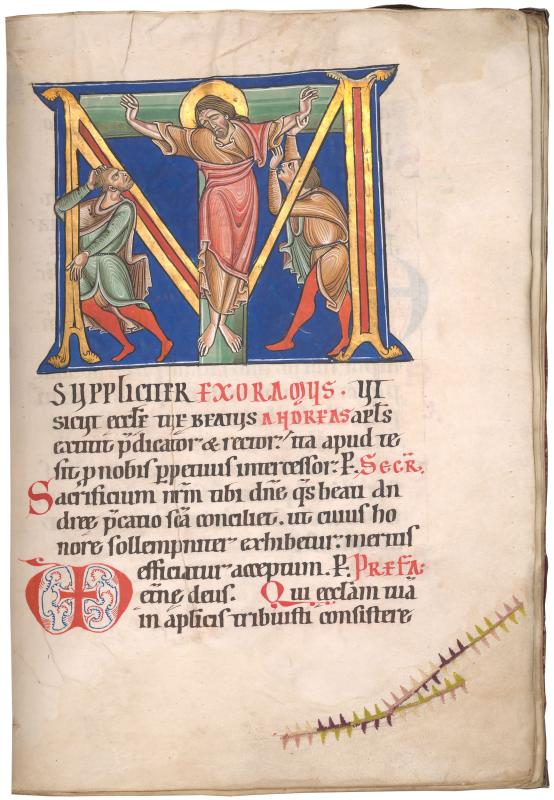 M
SUPPLICITER EXORAMUS. UT
SICUT eccłe TUE BEATUS ANDREAS apłs
extitit p̄dicator & rector, ita apud te
sit p nobis ppetuus intercessor. P. SECR̄.
Sacrificium nr̄m tibi dn̄e q̄s beati an
dree p̄catio sc̄a conciliet. ut cuius ho
nore sollempniter exhibetur. meritis
efficiatur acceptum. P. PREFA.
etn̄e deus. Qui eccłam tuā
in apłicis tribuisti consistere